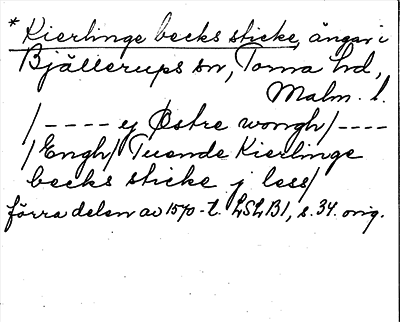 *Kierlinge becks sticke, ängar i
Bjällerups sn, Torna hd,
Malm. l.
/---- ej Østre wongh/----
/Engh/ Tuende Kierlinge
becks sticke j less/
förra delen av 1570-t. LSLB1, s. 34. orig.